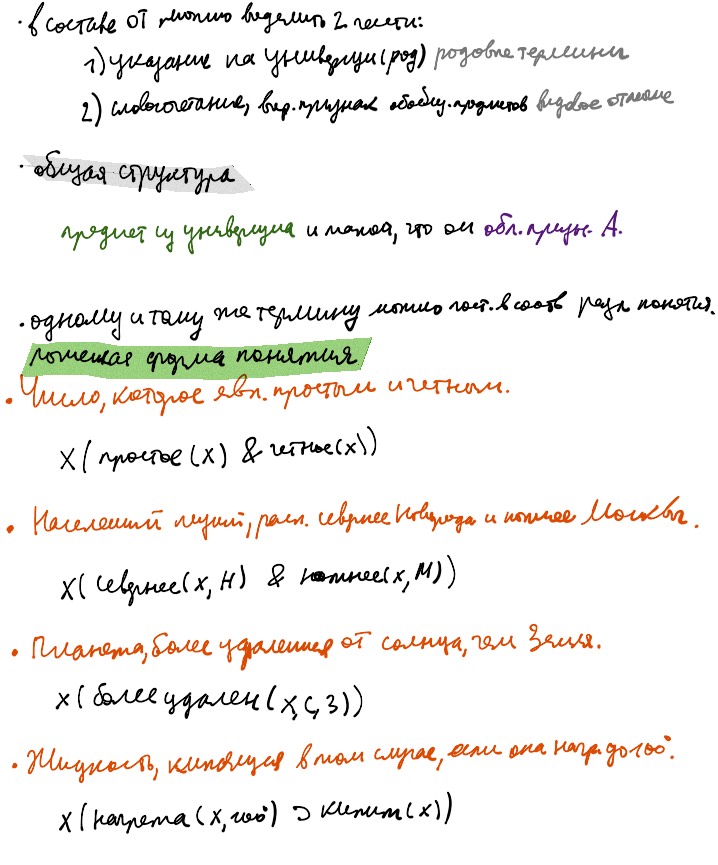 · в составе ОТ можно выделить 2 части:
1) указание на универсум (род) родовые термины
2) словосочетание, выр. признак обобщ. предметов видовое отличие
· общая структура
предмет из универсума и такой, что он обл. призн. А.
· одному и тому же термину можно пост. в соотв разл понятия.
логическая форма понятия
· Число, которое явл. простым и четным.
x(простое(x) & четное(x))
· Населенный пункт, расп. севернее Новгорода и южнее Москвы.
x(севернее(x, Н) & южнее(x, М))
· Планета, более удаленная от солнца, чем Земля.
x(более удален(x, С, З))
· Жидкость, кипящая в том случае, если она нагр. до 100°.
x(нагрета(x, 100°) ⊃ кипит(x))